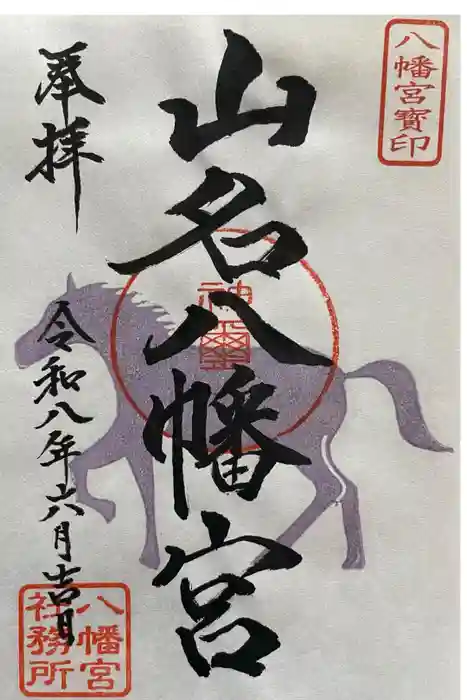 八幡宮寳印
山名八幡宮
神璽
奉拝
令和八年六月吉日
八幡宮
社務所